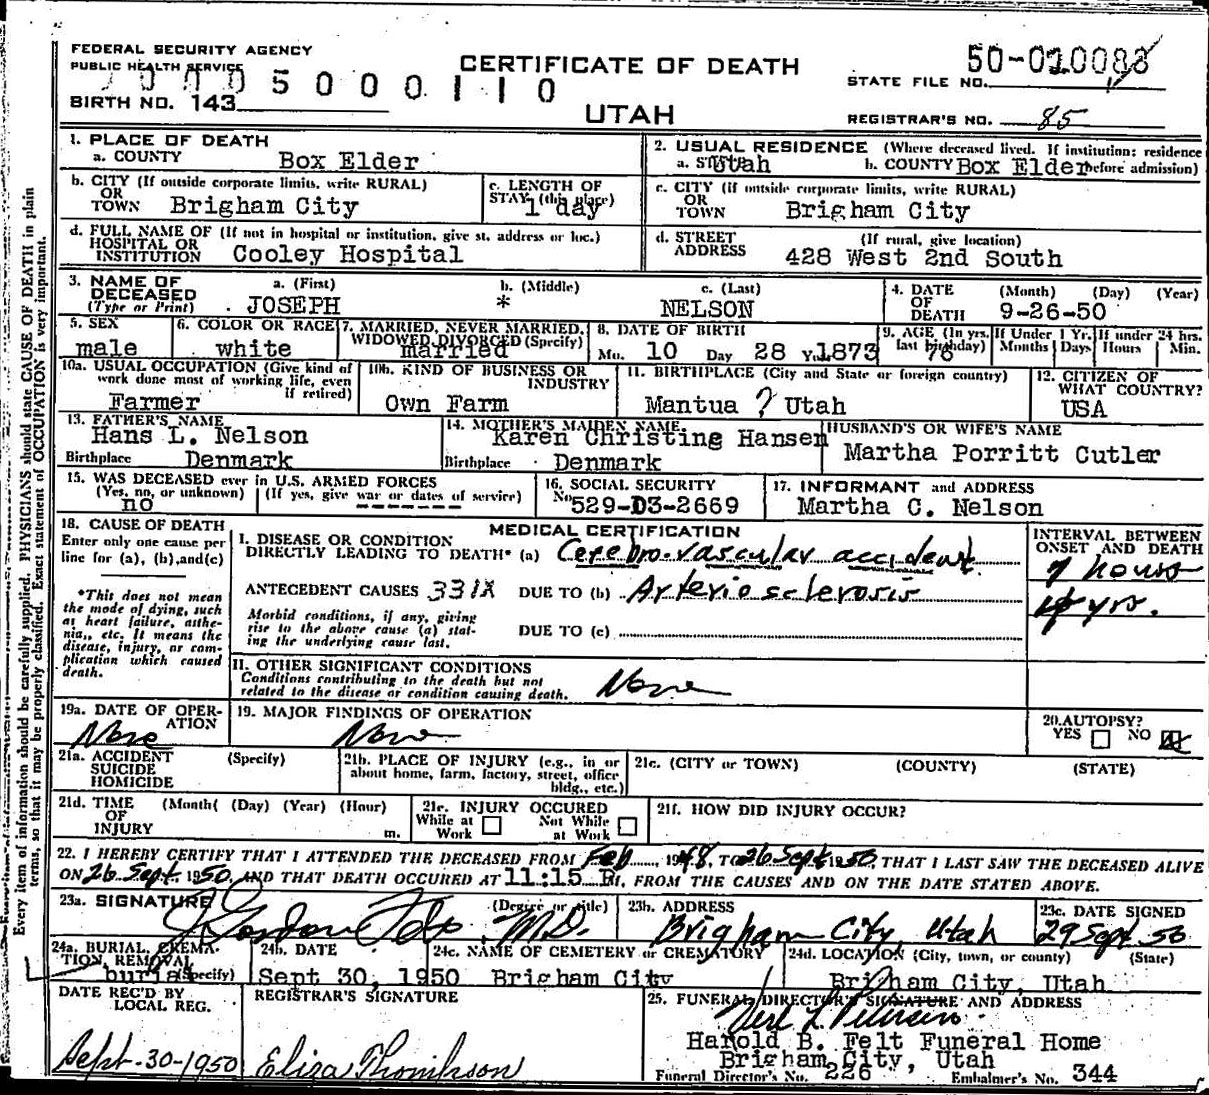 FEDERAL SECURITY AGENCY
PUBLIC HEALTH SERVICE
CERTIFICATE OF DEATH
UTAH
STATE FILE NO.
5 0 0 0 1 1 0
BIRTH NO. 143
REGISTRAR'S NO. 85
1. PLACE OF DEATH
a. COUNTY Box Elder
2. USUAL RESIDENCE (Where deceased lived. If institution: residence before admission)
a. STATE Utah b. COUNTY Box Elder
b. CITY (If outside corporate limits, write RURAL)
OR
TOWN Brigham City
c. LENGTH OF
STAY (this place)
1 day
c. CITY (if outside corporate limits, write RURAL)
OR
TOWN Brigham City
d. FULL NAME OF (If not in hospital or institution, give st. address or loc.)
HOSPITAL OR
INSTITUTION Cooley Hospital
d. STREET (If rural, give location)
ADDRESS 428 West 2nd South
3. NAME OF DECEASED (Type or Print)
a. (First) b. (Middle) c. (Last)
JOSEPH * NELSON
4. DATE OF DEATH (Month) (Day) (Year)
9-26-50
5. SEX male
6. COLOR OR RACE white
7. MARRIED, NEVER MARRIED, WIDOWED, DIVORCED (Specify)
married
8. DATE OF BIRTH
Mo. 10 Day 28 Yr. 1873
9. AGE (In yrs. last birthday) 76
If Under 1 Yr. Months Days
If under 24 hrs. Hours Min.
10a. USUAL OCCUPATION (Give kind of work done most of working life, even if retired)
Farmer
10b. KIND OF BUSINESS OR INDUSTRY
Own Farm
11. BIRTHPLACE (City and State or foreign country)
Mantua ? Utah
12. CITIZEN OF WHAT COUNTRY?
USA
13. FATHER'S NAME
Hans L. Nelson
Birthplace Denmark
14. MOTHER'S MAIDEN NAME
Karen Christing Hansen
Birthplace Denmark
HUSBAND'S OR WIFE'S NAME
Martha Porritt Cutler
15. WAS DECEASED ever in U.S. ARMED FORCES
(Yes, no, or unknown) (If yes, give war or dates of service)
no -------
16. SOCIAL SECURITY
No. 529-D3-2669
17. INFORMANT and ADDRESS
Martha C. Nelson
18. CAUSE OF DEATH
Enter only one cause per line for (a), (b), and (c)
*This does not mean the mode of dying, such as heart failure, asthenia, etc. It means the disease, injury, or complication which caused death.
MEDICAL CERTIFICATION
INTERVAL BETWEEN ONSET AND DEATH
I. DISEASE OR CONDITION
DIRECTLY LEADING TO DEATH* (a) Cerebro-vascular accident 7 hours
ANTECEDENT CAUSES 331X DUE TO (b) Arteriosclerosis yrs.
Morbid conditions, if any, giving rise to the above cause (a) stating the underlying cause last.
DUE TO (c)
II. OTHER SIGNIFICANT CONDITIONS
Conditions contributing to the death but not related to the disease or condition causing death.
None
19a. DATE OF OPERATION
None
19. MAJOR FINDINGS OF OPERATION
None
20. AUTOPSY?
YES NO
21a. ACCIDENT SUICIDE HOMICIDE (Specify)
21b. PLACE OF INJURY (e.g., in or about home, farm, factory, street, office bldg., etc.)
21c. (CITY or TOWN) (COUNTY) (STATE)
21d. TIME OF INJURY (Month( (Day) (Year) (Hour) m.
21e. INJURY OCCURED
While at Work Not While at Work
21f. HOW DID INJURY OCCUR?
22. I HEREBY CERTIFY THAT I ATTENDED THE DECEASED FROM Feb, 1948, TO 26 Sept 1950, THAT I LAST SAW THE DECEASED ALIVE
ON 26 Sept. 1950, AND THAT DEATH OCCURED AT 11:15 P. M., FROM THE CAUSES AND ON THE DATE STATED ABOVE.
23a. SIGNATURE (Degree or title)
M.D.
23b. ADDRESS
Brigham City Utah
23c. DATE SIGNED
29 Sept 50
24a. BURIAL, CREMATION, REMOVAL (Specify)
burial
24b. DATE
Sept 30, 1950
24c. NAME OF CEMETERY or CREMATORY
Brigham City
24d. LOCATION (City, town, or county) (State)
Brigham City, Utah
DATE REC'D BY LOCAL REG.
Sept-30-1950
REGISTRAR'S SIGNATURE
Eliza Thompson
25. FUNERAL DIRECTOR'S SIGNATURE AND ADDRESS
Harold B. Felt Funeral Home
Brigham City, Utah
Funeral Director's No. 226 Embalmer's No. 344
Every item of information should be carefully supplied. PHYSICIANS should state CAUSE OF DEATH in plain
terms, so that it may be properly classified. Exact statement of OCCUPATION is very important.